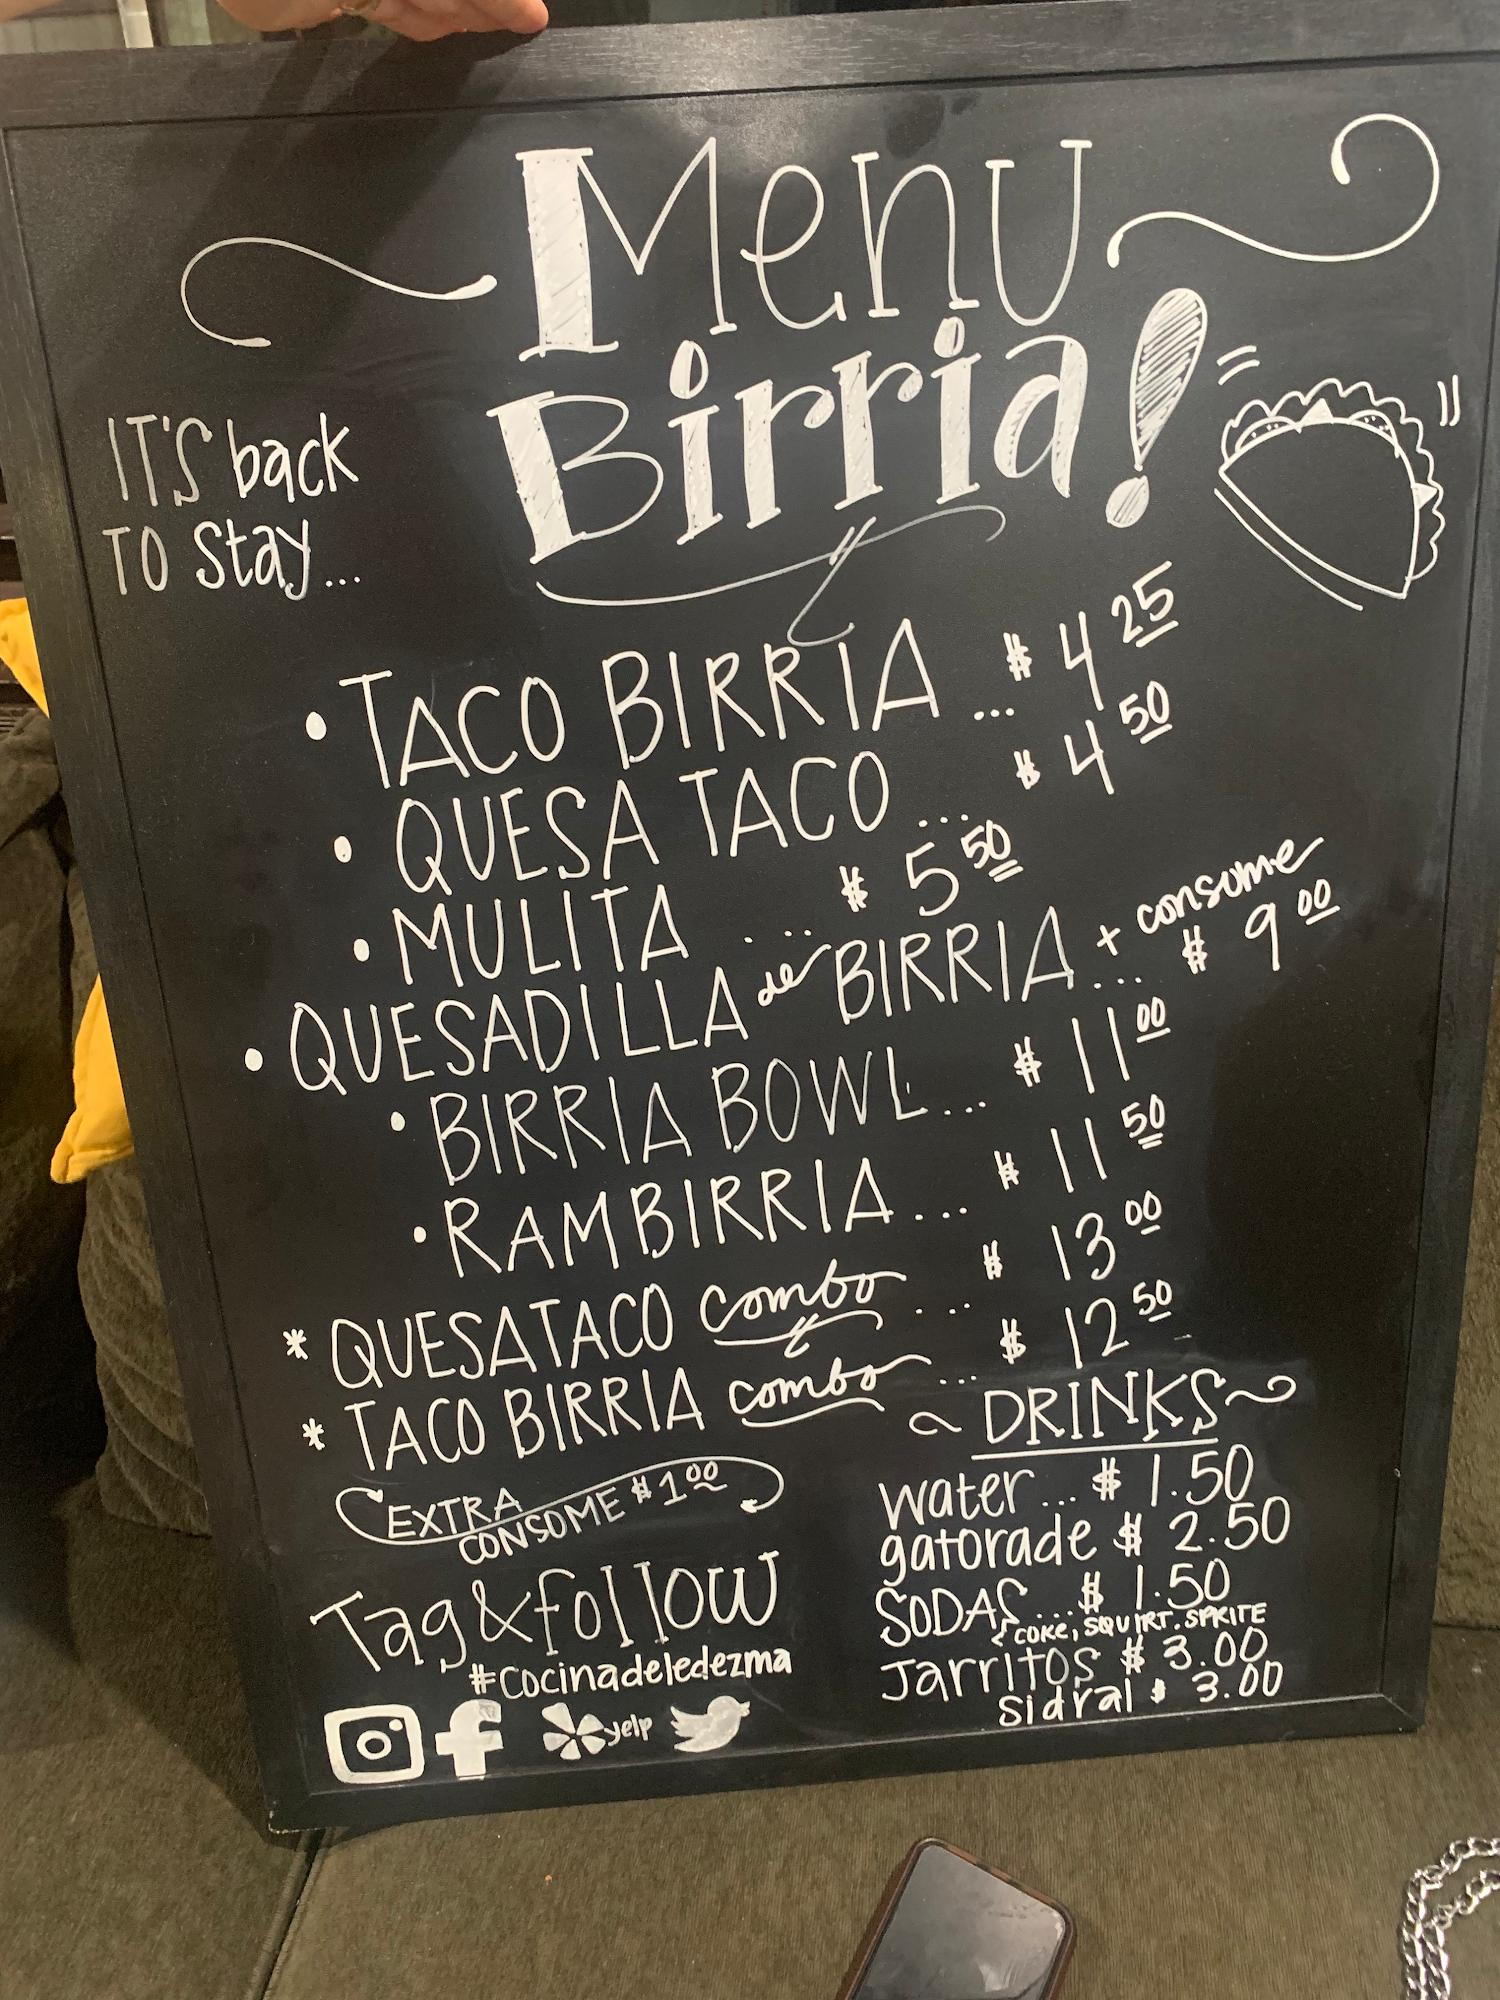 Menu
Birria!
IT'S back
TO stay...
• TACO BIRRIA ... $ 4 25
• QUESA TACO ... $ 4 50
• MULITA .... $ 5 50
• QUESADILLA de BIRRIA + consome ... $ 9 00
• BIRRIA BOWL... $ 11 00
• RAMBIRRIA... $ 11 50
* QUESATACO combo ... $ 13 00
* TACO BIRRIA combo ... $ 12 50
EXTRA
CONSOME $ 1 00
Tag & follow
#cocinadeledezma
f yelp
DRINKS
water... $ 1.50
gatorade $ 2.50
SODAS ... $ 1.50
COKE, SQUIRT. SPRITE
Jarritos $ 3.00
sidral $ 3.00